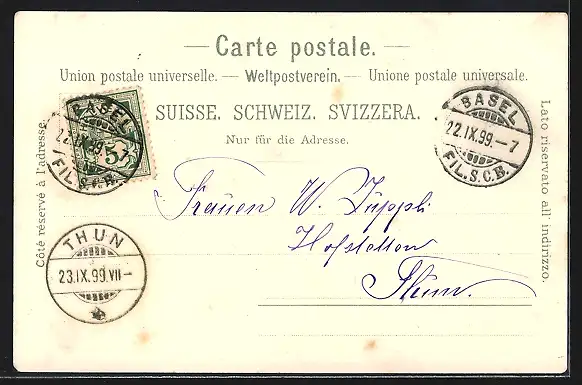 — Carte postale. —
Union postale universelle. — Weltpostverein. — Unione postale universale.
SUISSE. SCHWEIZ. SVIZZERA.
Nur für die Adresse.
Côté réservé à l'adresse.
Lato riservato all' indirizzo.
BASEL
22.IX.99.–7
FIL.S.C.B.
5
BASEL
22.IX.99.–7
FIL.S.C.B.
THUN
23.IX.99.VII–
Frauen W. Züppli
Hofstetten
Thun.